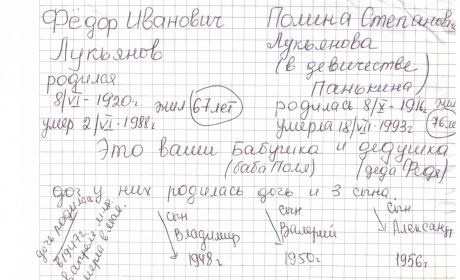 Фёдор Иванович
Лукьянов
родилая
8/VI - 1920г. жил 67 лет
умер 2/VI - 1988г
Полина Степановна
Лукьянова
(в девичестве
Панькина)
родилась 8/X - 1916г. жил
умерла 18/VII - 1993г 76 ле
Это ваши Бабушка и дедушка
(баба Поля) (деда Федя)
у них родилась дочь и 3 сына.
дочь родилась
в 1947г.
в апреле и
умерла в мае.
сын
Владимир
1948г
сын
Валерий
1950г
сын
Александр
1956г